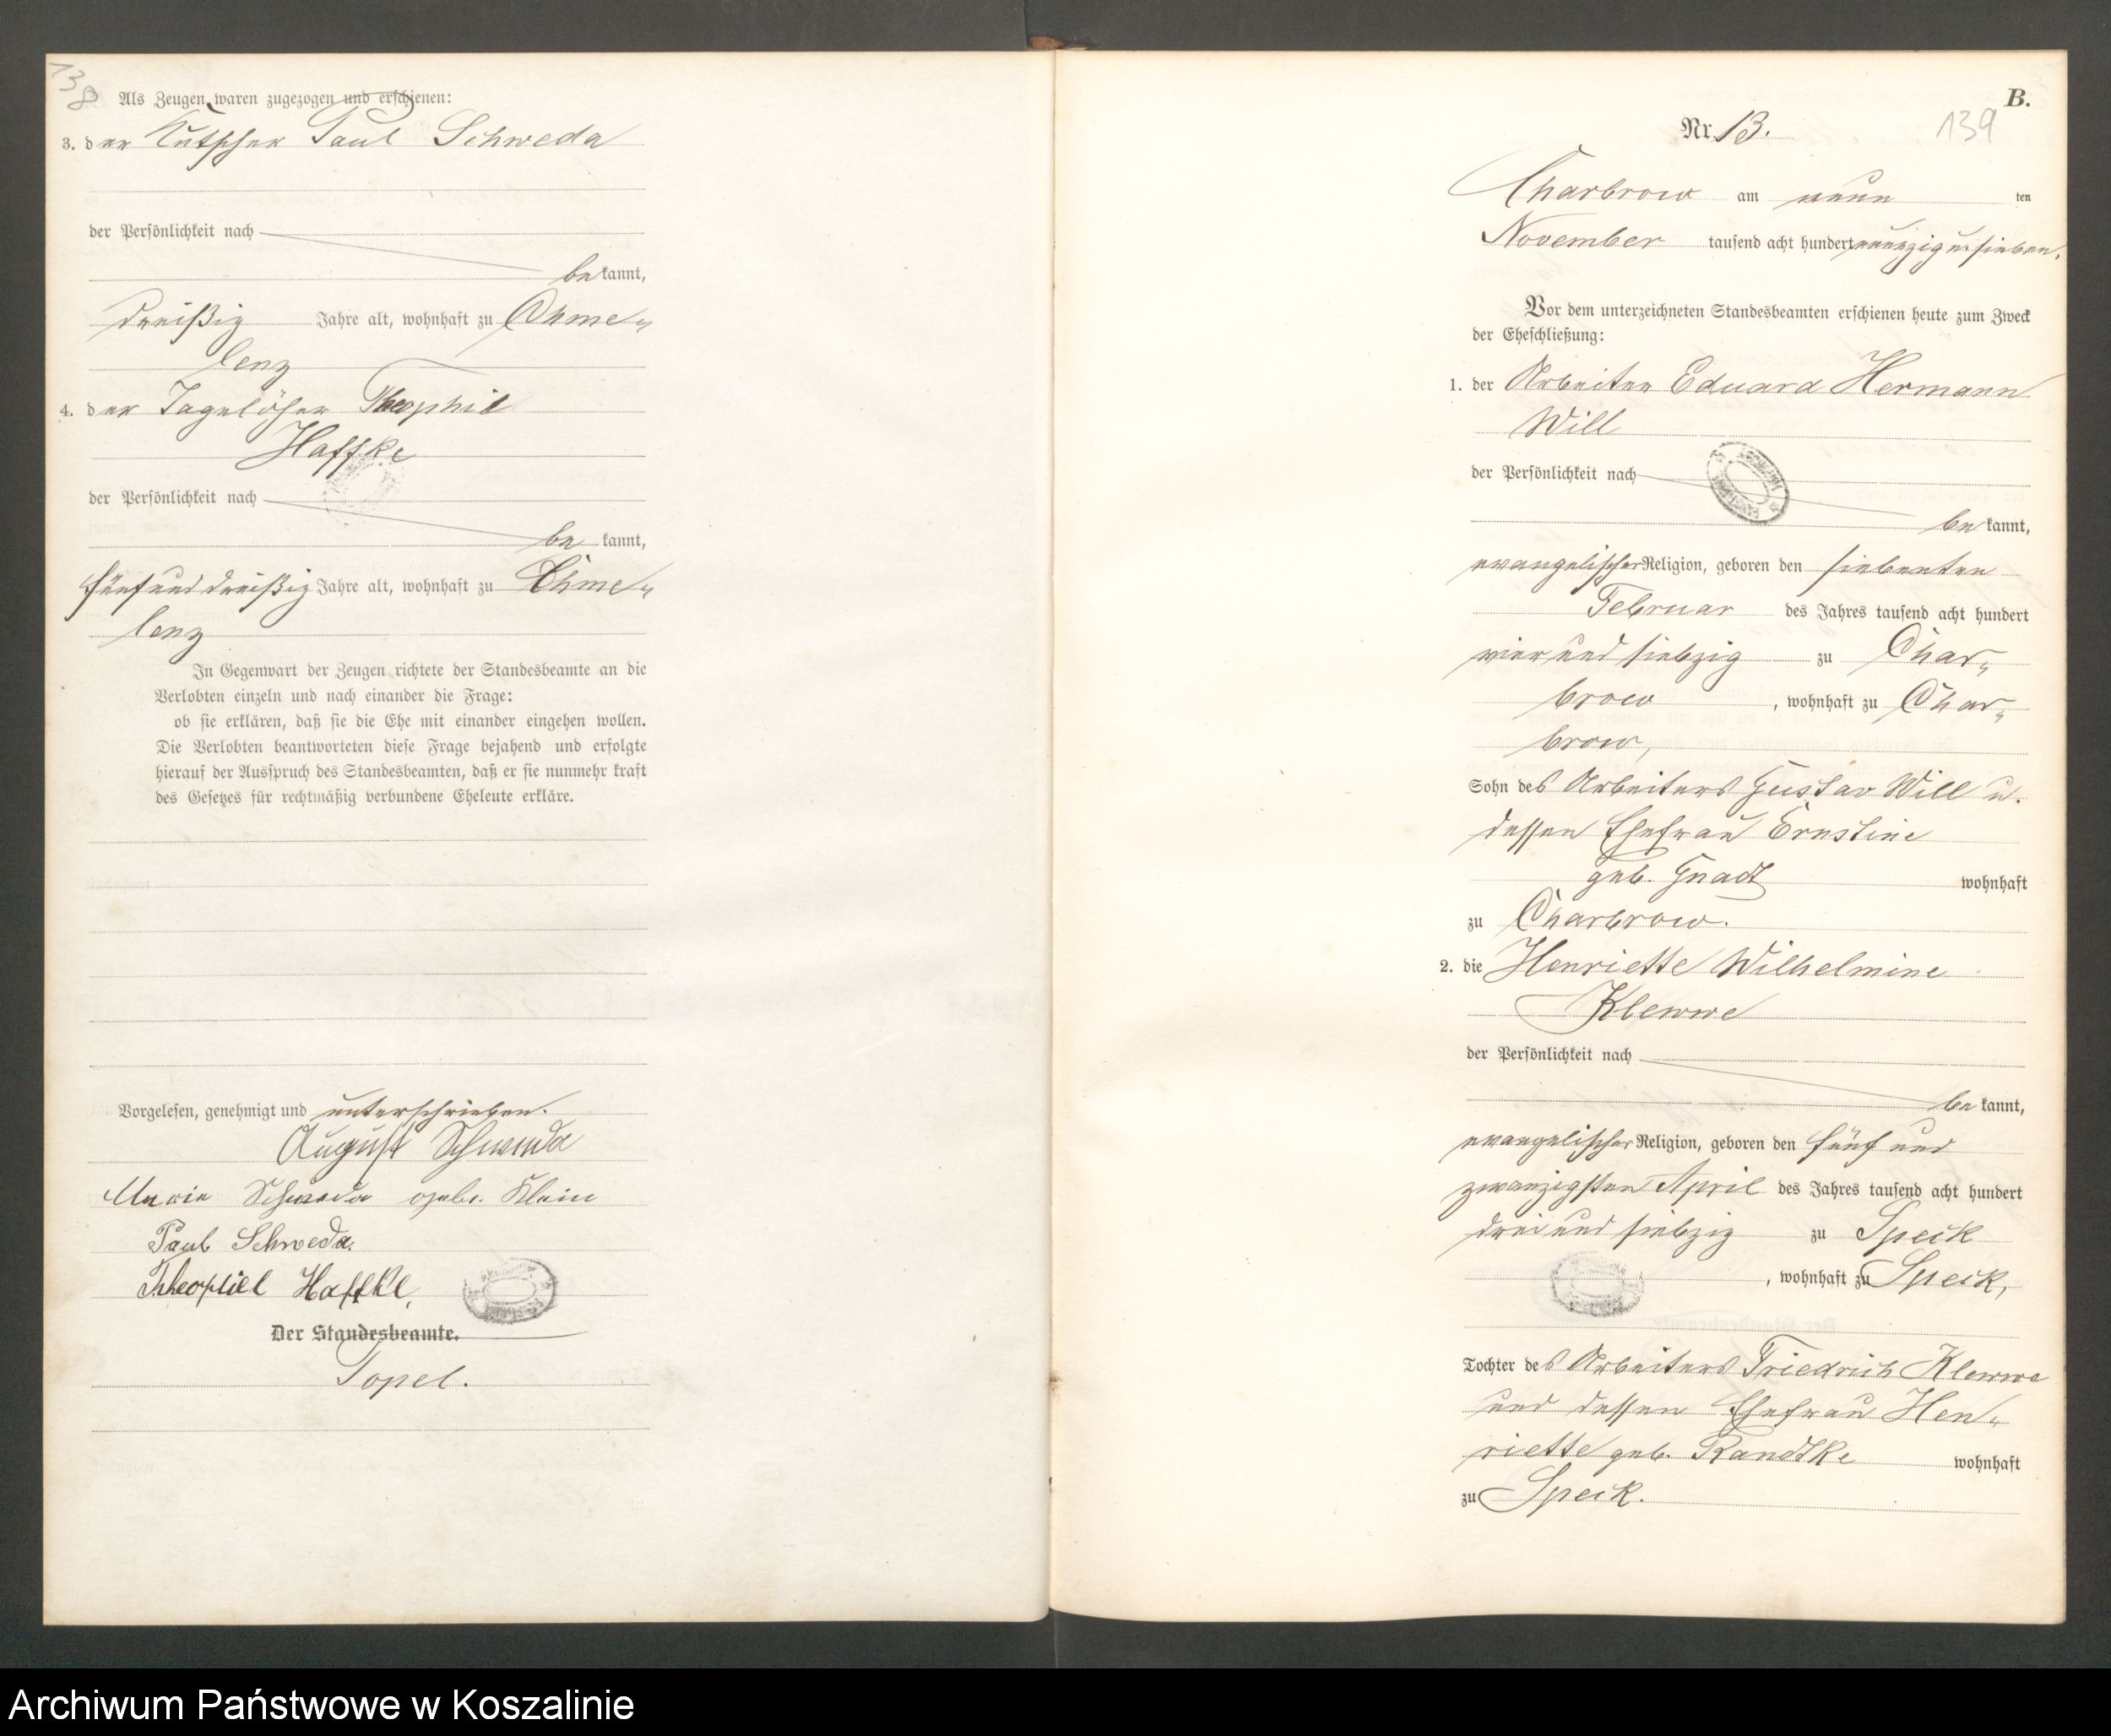 138
Als Zeugen waren zugezogen und erschienen:
3. der Kutscher Paul Schweda
der Persönlichkeit nach
bekannt,
dreißig Jahre alt, wohnhaft zu Chme-
lenz
4. der Tagelöher Theophil
Haffke
der Persönlichkeit nach
be kannt,
fünf und dreißig Jahre alt, wohnhaft zu Chme-
lenz
In Gegenwart der Zeugen richtete der Standesbeamte an die
Verlobten einzeln und nach einander die Frage:
ob sie erklären, daß sie die Ehe mit einander eingehen wollen.
Die Verlobten beantworteten diese Frage bejahend und erfolgte
hierauf der Ausspruch des Standesbeamten, daß er sie nunmehr kraft
des Gesetzes für rechtmäßig verbundene Eheleute erkläre.
Vorgelesen, genehmigt und unterschrieben.
August Schweda
Marie Schweda geb. Klein
Paul Schweda.
Theophiel Haffke,
Der Standesbeamte.
Topel.
B.
Nr. 13. 139
Charbrow am neun ten
November tausend acht hundert neunzig u. sieben.
Vor dem unterzeichneten Standesbeamten erschienen heute zum Zweck
der Eheschließung:
1. der Arbeiter Eduard Hermann
Will
der Persönlichkeit nach
be kannt,
evangelischer Religion, geboren den siebenten
Februar des Jahres tausend acht hundert
vier und siebzig zu Char-
brow, wohnhaft zu Char-
brow,
Sohn des Arbeiters Gustav Will u.
dessen Ehefrau Ernstine
geb. Gnadt wohnhaft
zu Charbrow.
2. die Henriette Wilhelmine
Klewwe
der Persönlichkeit nach
be kannt,
evangelischer Religion, geboren den fünf und
zwanzigsten April des Jahres tausend acht hundert
drei und siebzig zu Speck
, wohnhaft zu Speck,
Tochter des Arbeiters Friedrich Klewwe
und dessen Ehefrau Hen-
riette geb. Randtke wohnhaft
zu Speck.
Archiwum Państwowe w Koszalinie